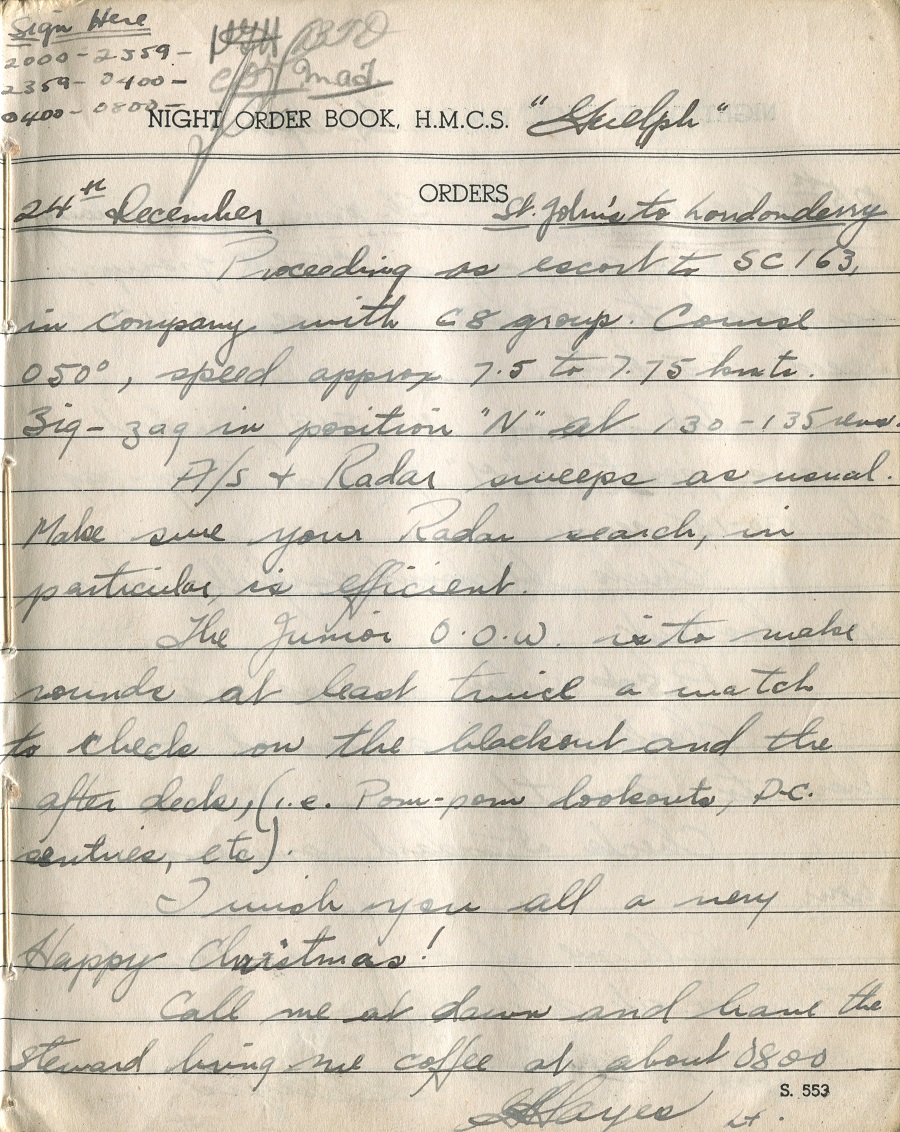 Sign Here
2000-2359-
2359-0400-
0400-0800-
NIGHT ORDER BOOK, H.M.C.S. "Guelph"
ORDERS
24th December St. John's to Londonderry
Proceeding as escort to SC 163,
in company with C8 group. Course
050°, speed approx 7.5 to 7.75 knots.
Zig-zag in position "N" at 130-135 revs.
A/S + Radar sweeps as usual.
Make sure your Radar search, in
particular, is efficient.
The Junior O.O.W. is to make
rounds at least twice a watch
to check on the blackout and the
after deck, (i.e. Pom-pom lookouts, D.C.
sentries, etc).
I wish you all a very
Happy Christmas!
Call me at dawn and have the
steward bring me coffee at about 0800
Hayes Lt.
S. 553